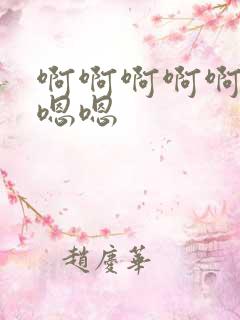 啊啊啊啊啊
嗯嗯
趙慶華